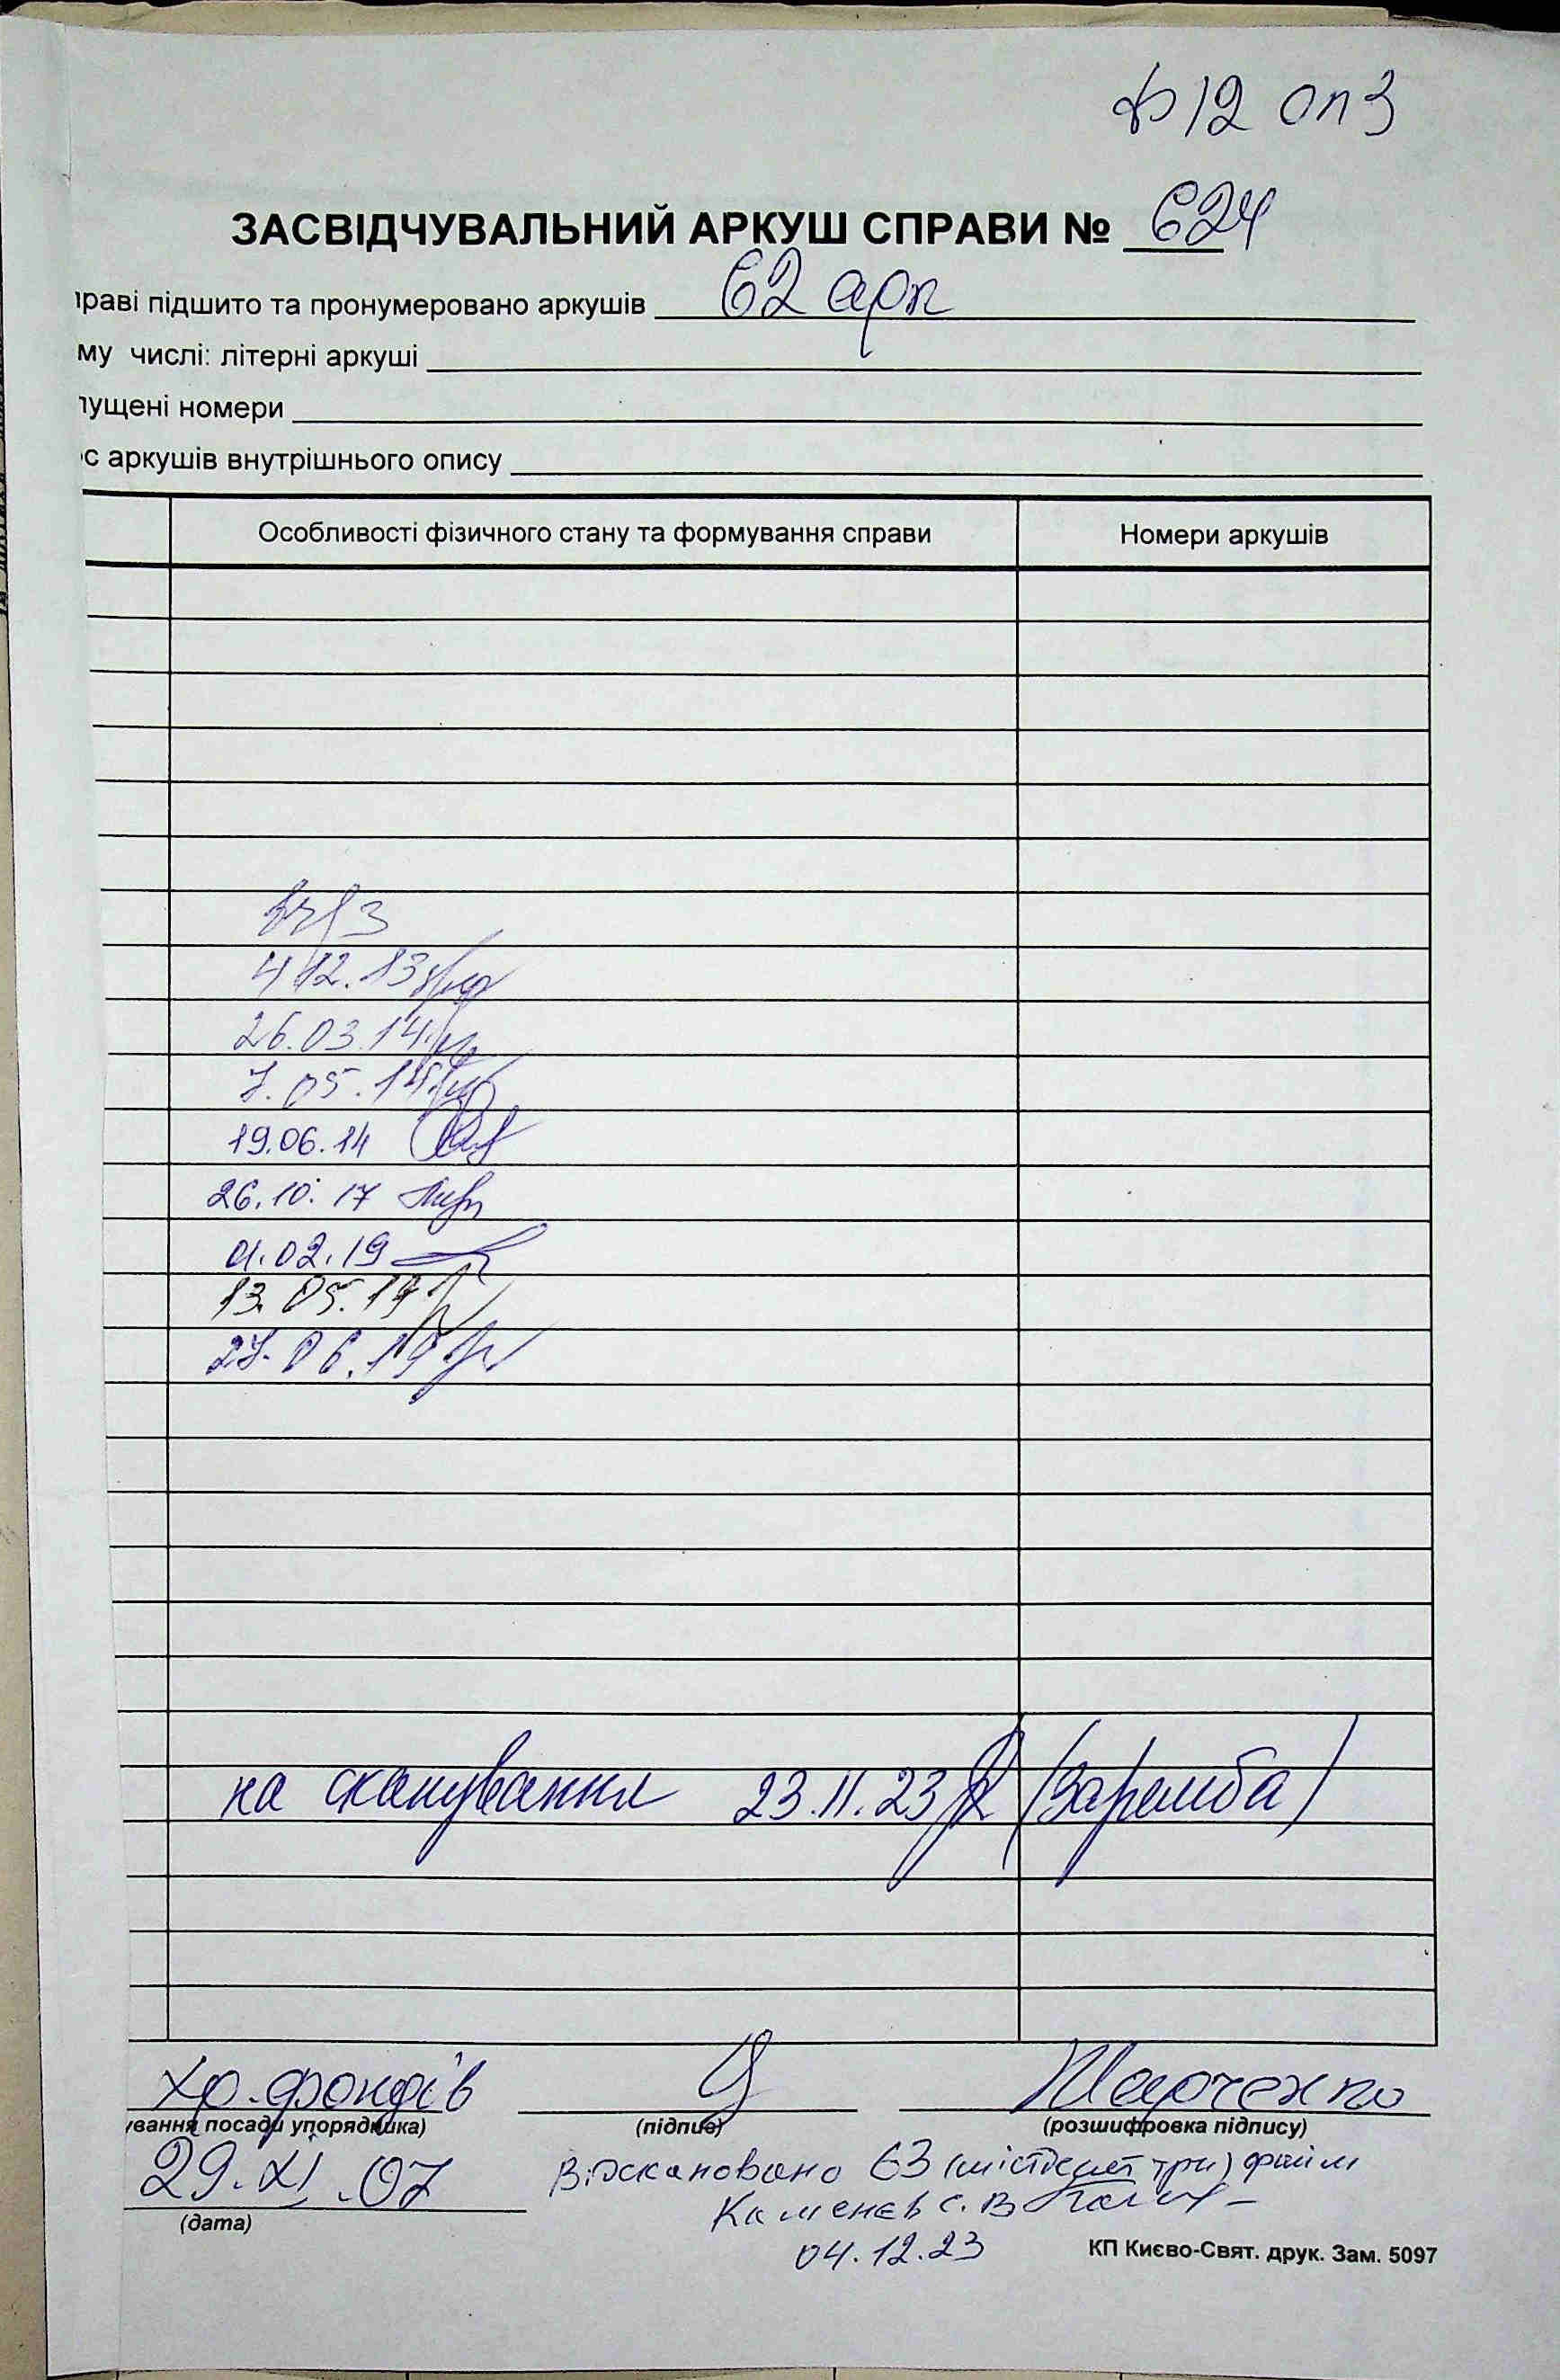 ф 12 оп 3
ЗАСВІДЧУВАЛЬНИЙ АРКУШ СПРАВИ № 624
раві підшито та пронумеровано аркушів 62 арк
му числі: літерні аркуші
пущені номери
с аркушів внутрішнього опису
Особливості фізичного стану та формування справи Номери аркушів
4 12.13
26.03.14
7.05.14
19.06.14
26.10.17
01.02.19
13.05.19
27.06.19
на сканування 23.11.23 (Заремба)
хр.фондів Марченко
ування посади упорядника) (підпис) (розшифровка підпису)
29.XI.07 Відскановано 63 (шістдесят три) файли
Каменєв С.В
(дата)
04.12.23 КП Києво-Свят. друк. Зам. 5097